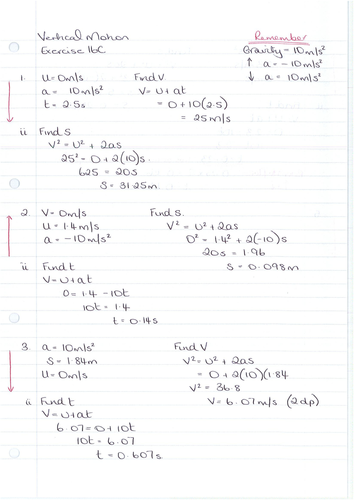 Vertical Motion
Remember
Exercise 16C
Gravity - 10m/s²
↑ a = -10m/s²
↓ a = 10m/s²
1. U = 0m/s Find V
a = 10m/s² V = U + at
t = 2.5s = 0 + 10(2.5)
= 25m/s
ii Find S
V² = U² + 2as
25² = 0 + 2(10)s
625 = 20s
S = 31.25m
2. V = 0m/s Find S.
U = 1.4m/s V² = U² + 2as
a = -10m/s² 0² = 1.4² + 2(-10)s
20s = 1.96
ii Find t S = 0.098m
V = U + at
0 = 1.4 - 10t
10t = 1.4
t = 0.14s
3. a = 10m/s² Find V
S = 1.84m V² = U² + 2as
U = 0m/s = 0 + 2(10)(1.84
V² = 36.8
ii Find t V = 6.07m/s (2dp)
V = U + at
6.07 = 0 + 10t
10t = 6.07
t = 0.607s